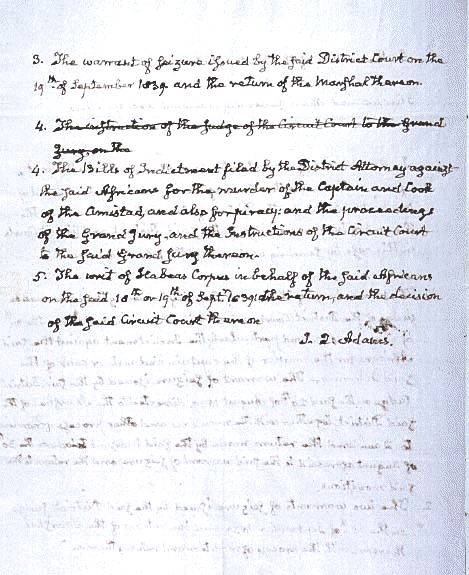 3. The warrant of Seizure issued by the said District Court on the
19th of September 1839 and the return of the Marshal thereon.
4. The instruction of the Judge of the Circuit Court to the Grand
Jury, on the
4. The Bills of Indictment filed by the District Attorney against
the said Africans for the murder of the Captain and Cook
of the Amistad, and also for piracy: and the proceedings
of the Grand Jury, and the Instructions of the Circuit Court
to the said Grand Jury thereon.
5. The writ of Habeas Corpus in behalf of the said Africans
on the said 18th or 19th of Septr 1839, the return, and the decision
of the said Circuit Court thereon
J. Q. Adams.